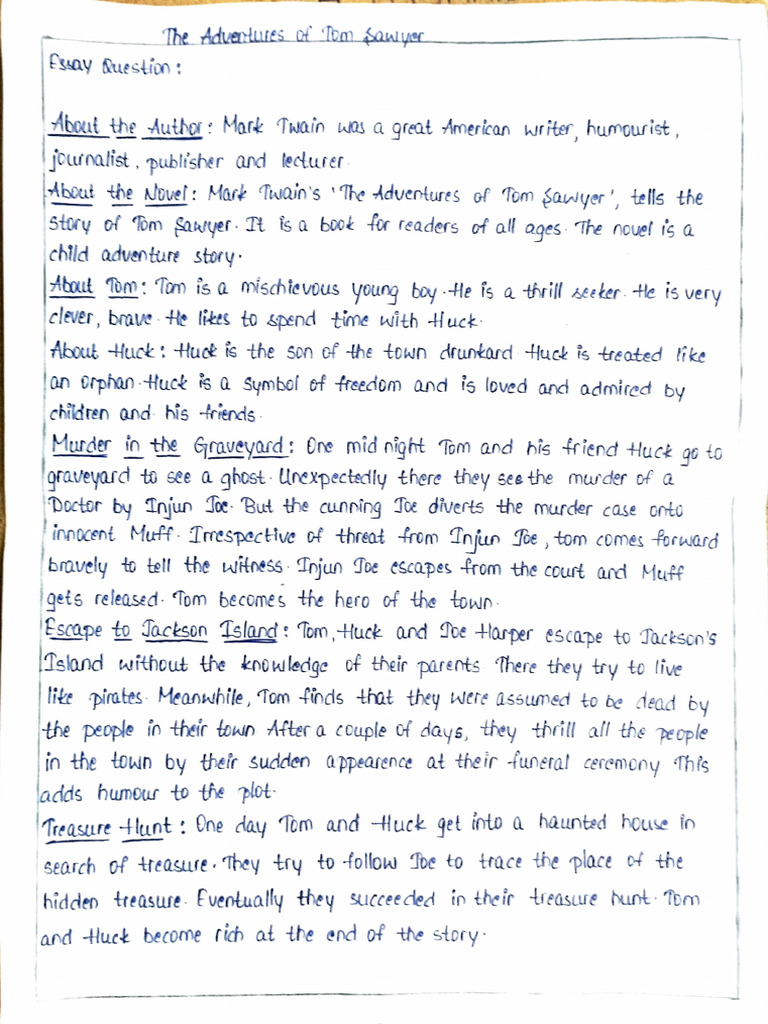 The Adventures of Tom Sawyer
Essay Question:
About the Author: Mark Twain was a great American writer, humourist,
journalist, publisher and lecturer.
About the Novel: Mark Twain's 'The Adventures of Tom Sawyer', tells the
story of Tom Sawyer. It is a book for readers of all ages. The novel is a
child adventure story.
About Tom: Tom is a mischievous young boy. He is a thrill seeker. He is very
clever, brave. He likes to spend time with Huck.
About Huck: Huck is the son of the town drunkard. Huck is treated like
an orphan. Huck is a symbol of freedom and is loved and admired by
children and his friends.
Murder in the Graveyard: One mid night Tom and his friend Huck go to
graveyard to see a ghost. Unexpectedly there they see the murder of a
Doctor by Injun Joe. But the cunning Joe diverts the murder case onto
innocent Muff. Irrespective of threat from Injun Joe, tom comes forward
bravely to tell the witness. Injun Joe escapes from the court and Muff
gets released. Tom becomes the hero of the town.
Escape to Jackson Island: Tom, Huck and Joe Harper escape to Jackson's
Island without the knowledge of their parents There they try to live
like pirates. Meanwhile, Tom finds that they were assumed to be dead by
the people in their town After a couple of days, they thrill all the people
in the town by their sudden appearence at their funeral ceremony This
adds humour to the plot.
Treasure Hunt: One day Tom and Huck get into a haunted house in
search of treasure. They try to follow Joe to trace the place of the
hidden treasure. Eventually they succeeded in their treasure hunt. Tom
and Huck become rich at the end of the story.